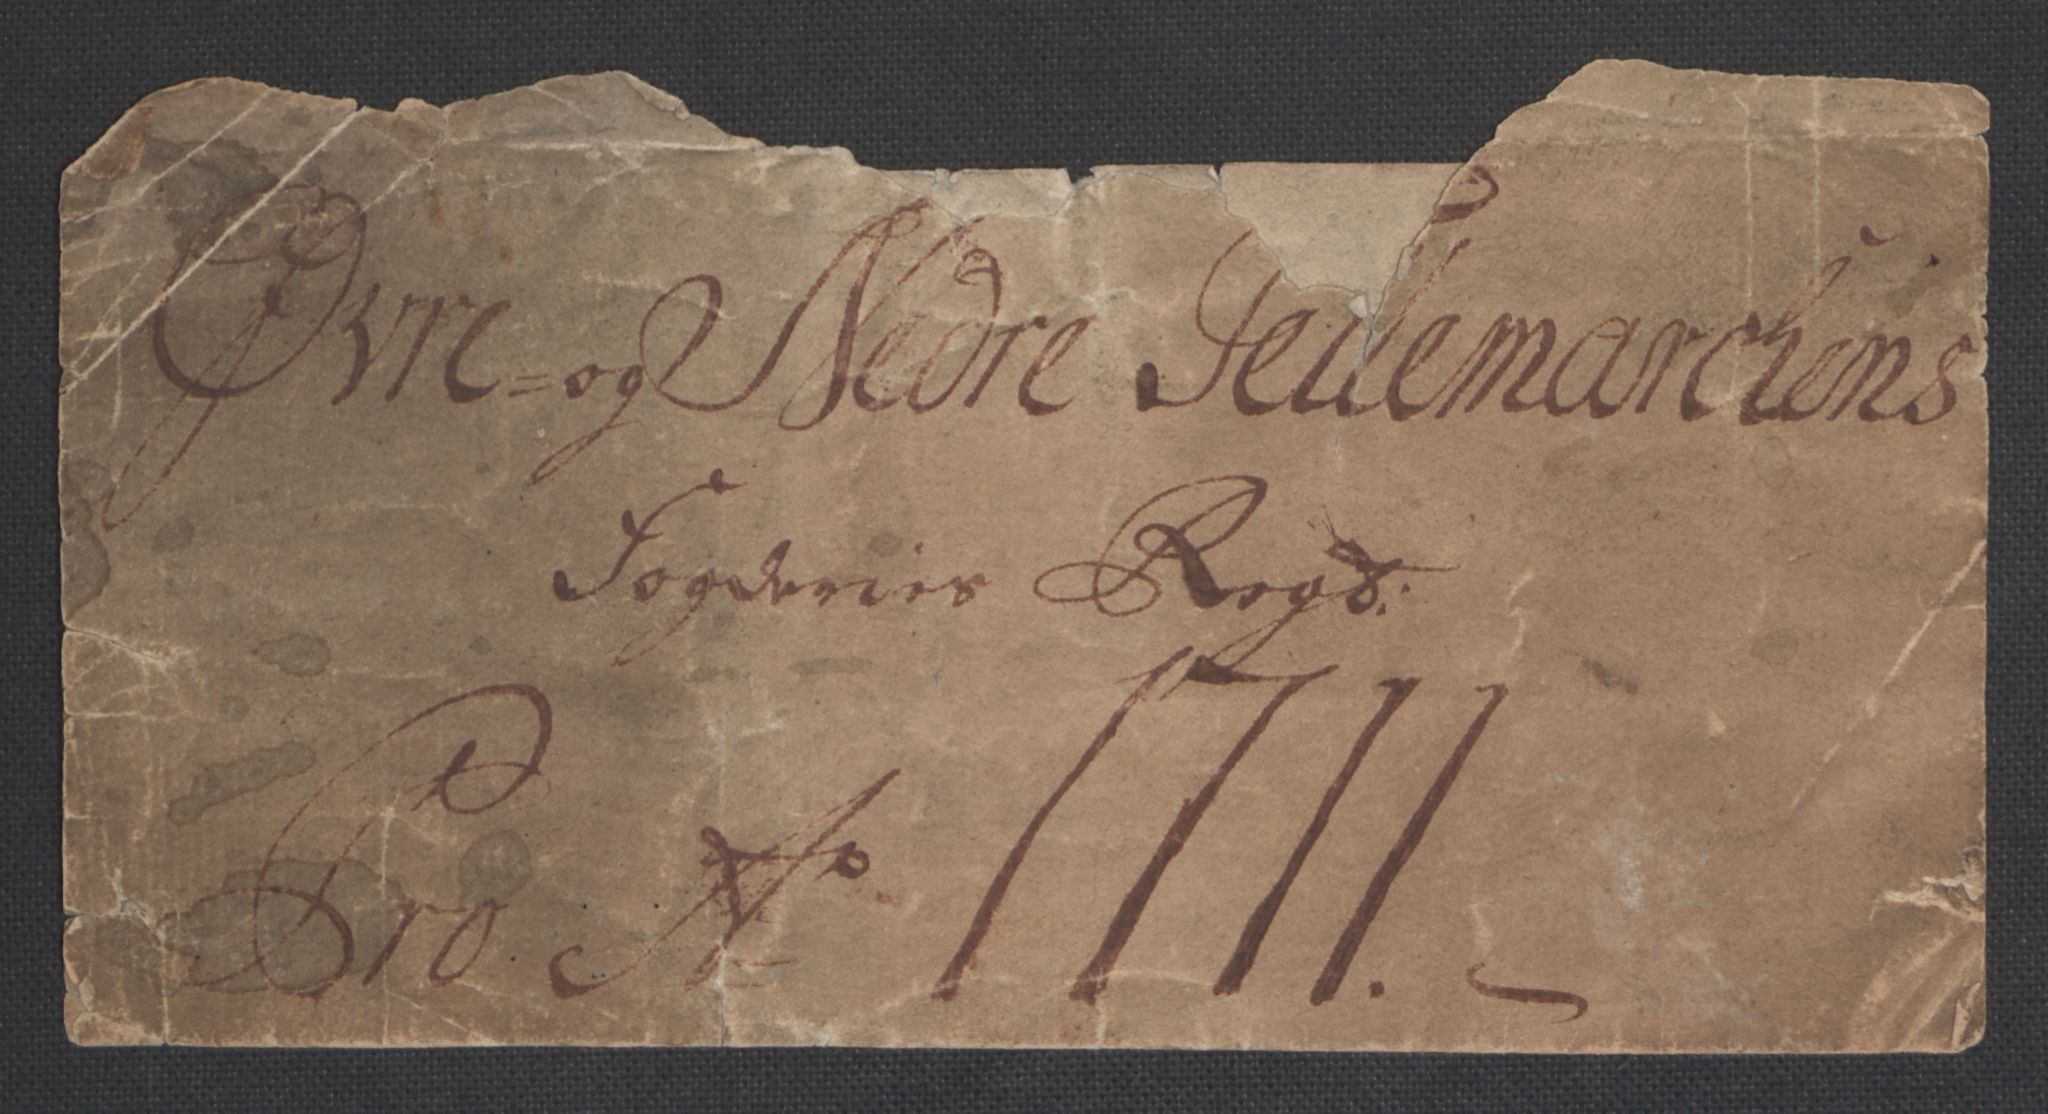 Øvre=og Nedre Tellemarchens
Fogderies Regs:
Pro Aō 1711.